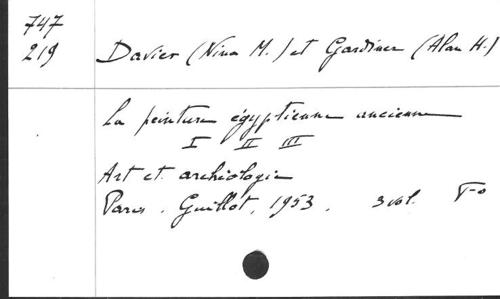 747
219 Davies (Nina M.) et Gardiner (Alan H.)
La peinture égyptienne ancienne
I II III
Art et archéologie
Paris. Guillot, 1953. 3 vol. F°